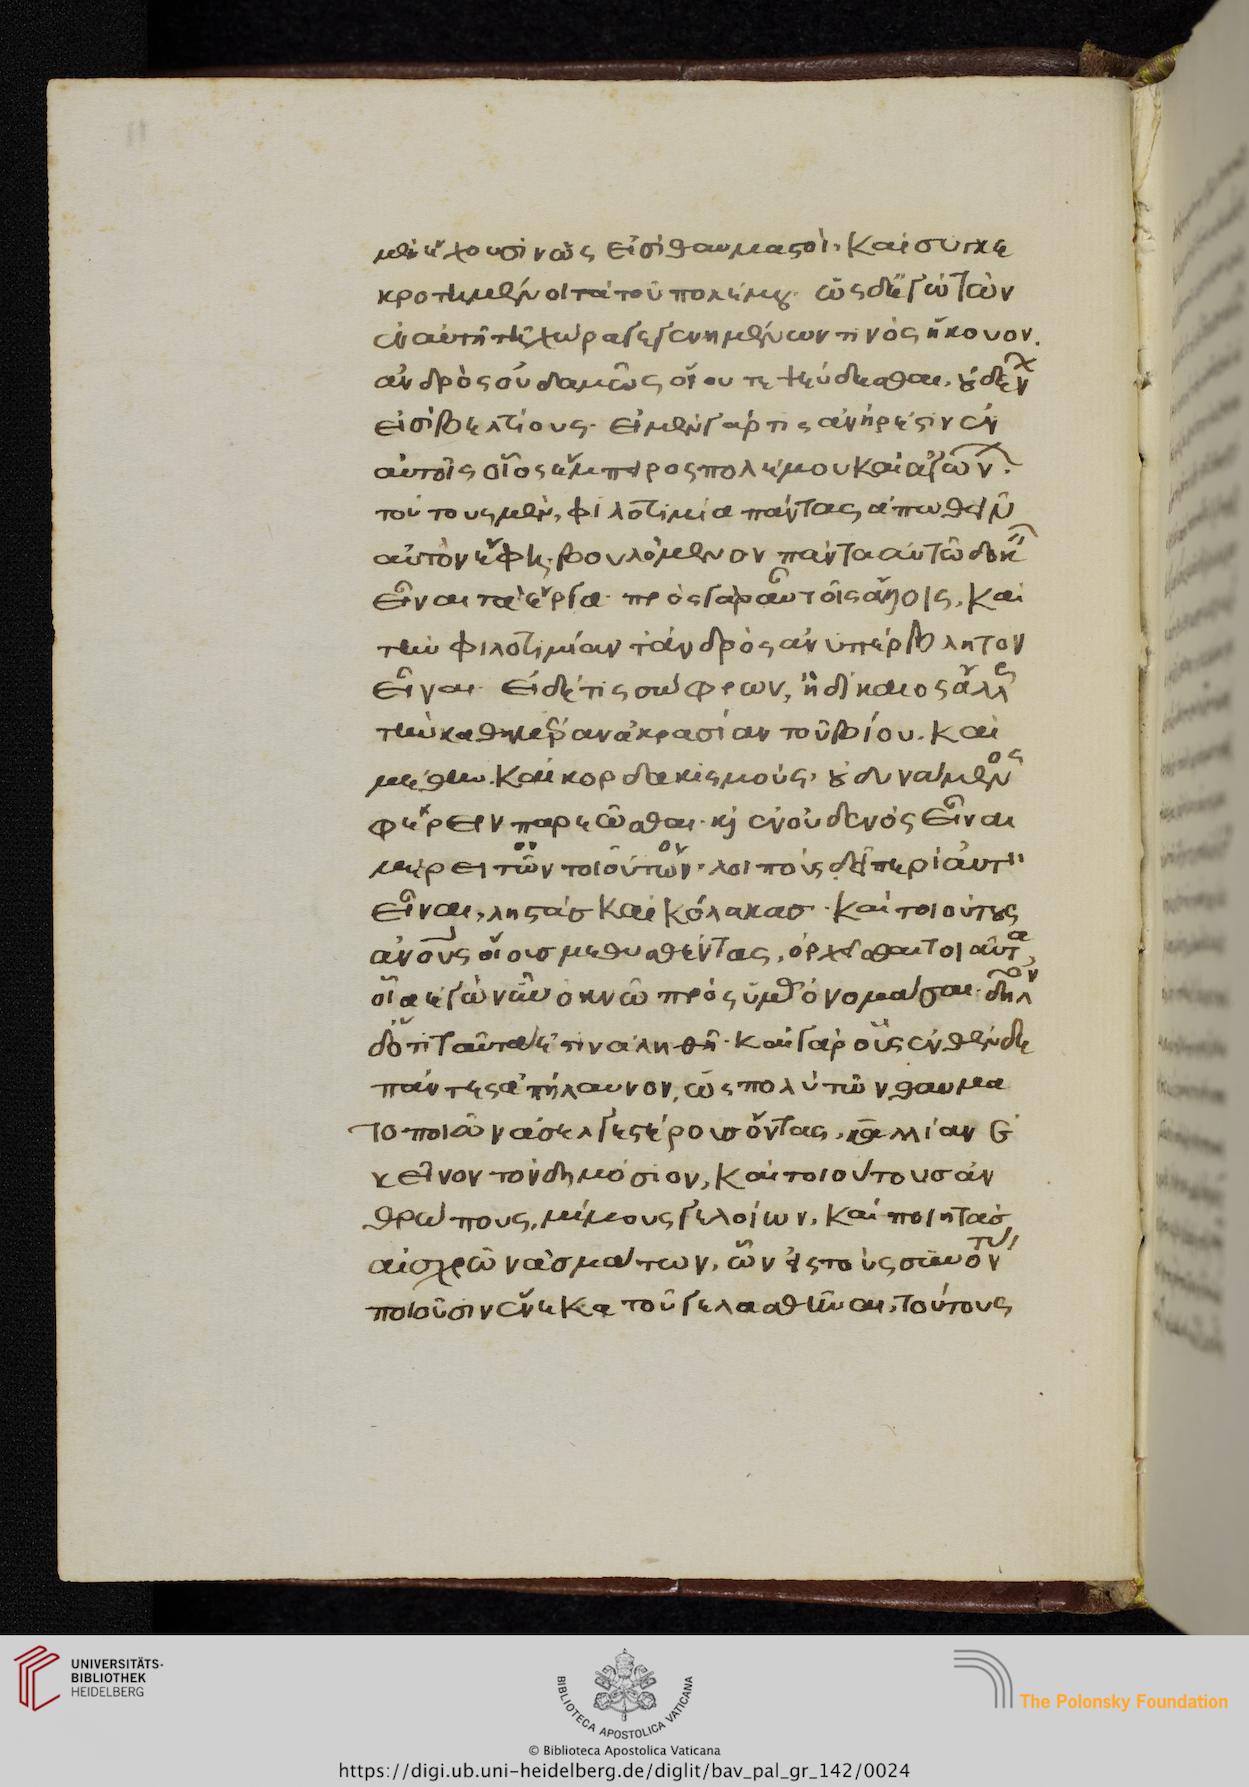 μὲν ἔχουσιν ὡς εἰσὶ θαυμαστοὶ, καὶ συγκε
κροτημένοι τὰ τοῦ πολέμου. ὡς δ' ἐγὼ τῶν
ἐν αὐτῆ τῆ χώρα γεγενημένων τινὸς ἤκουον.
ἀνδρὸς οὐδαμῶς οἵου τε ψεύδεσθαι, οὐδέν
εἰσὶ βελτίους. εἰ μὲν γάρ τις ἀνήρ ἐστιν ἐν
αὐτοῖς οἷος ἔμπειρος πολέμου καὶ ἀγώνων.
τούτους μὲν, φιλοτιμία πάντας ἀπωθεῖν
αὐτὸν ἔφη. βουλόμενον πάντα αὐτῶ δοκεῖν
εἶναι τὰ ἔργα. πρὸς γὰρ αὖ τοῖς ἄλλοις, καὶ
τὴν φιλοτιμίαν τἀνδρὸς ἀνυπέρβλητον
εἶναι. εἰ δέ τις σώφρων, ἢ δίκαιος ἄλλως
τὴν καθημεράν ἀκρασίαν τοῦ βίου. καὶ
μέθην. καὶ κορδακισμοὺς, οὐ δυνάμενος
φέρειν παρεῶσθαι. κὶ ἐν οὐδενὸς εἶναι
μέρει τῶν τοιούτων. λοιποὺς δὲ περὶ αὐτὸν
εἶναι, ληστὰσ καὶ κόλακασ. καὶ τοιούτους
ἀνους οἵουσ μεθυσθέντας, ὀρχεῖσθαι τοιαῦτα,
οἷα ἐγὼ νῦν ὀκνῶ πρὸς ὑμᾶς ὀνομάσαι. δῆλον
δ' ὅτι ταῦτα ἐστὶν ἀληθῆ. καὶ γὰρ οὓς ἐνθένδε
πάντες ἀπήλαυνον, ὡς πολὺ τῶν θαυμα
τοποιῶν ἀσελγεστέρουσ ὄντας, καλλίαν ἐ
κεῖνον τὸν δημόσιον, καὶ τοιούτουσ ἀν
θρώπους, μίμους γελοίων, καὶ ποιητὰσ
αἰσχρῶν ἀσμάτων, ὧν εἰς τοὺς συνόντας
ποιοῦσιν ἕνεκα τοῦ γελασθῆναι, τούτους
UNIVERSITÄTS-
BIBLIOTHEK
HEIDELBERG
BIBLIOTECA APOSTOLICA VATICANA
© Biblioteca Apostolica Vaticana
The Polonsky Foundation
https://digi.ub.uni-heidelberg.de/diglit/bav_pal_gr_142/0024